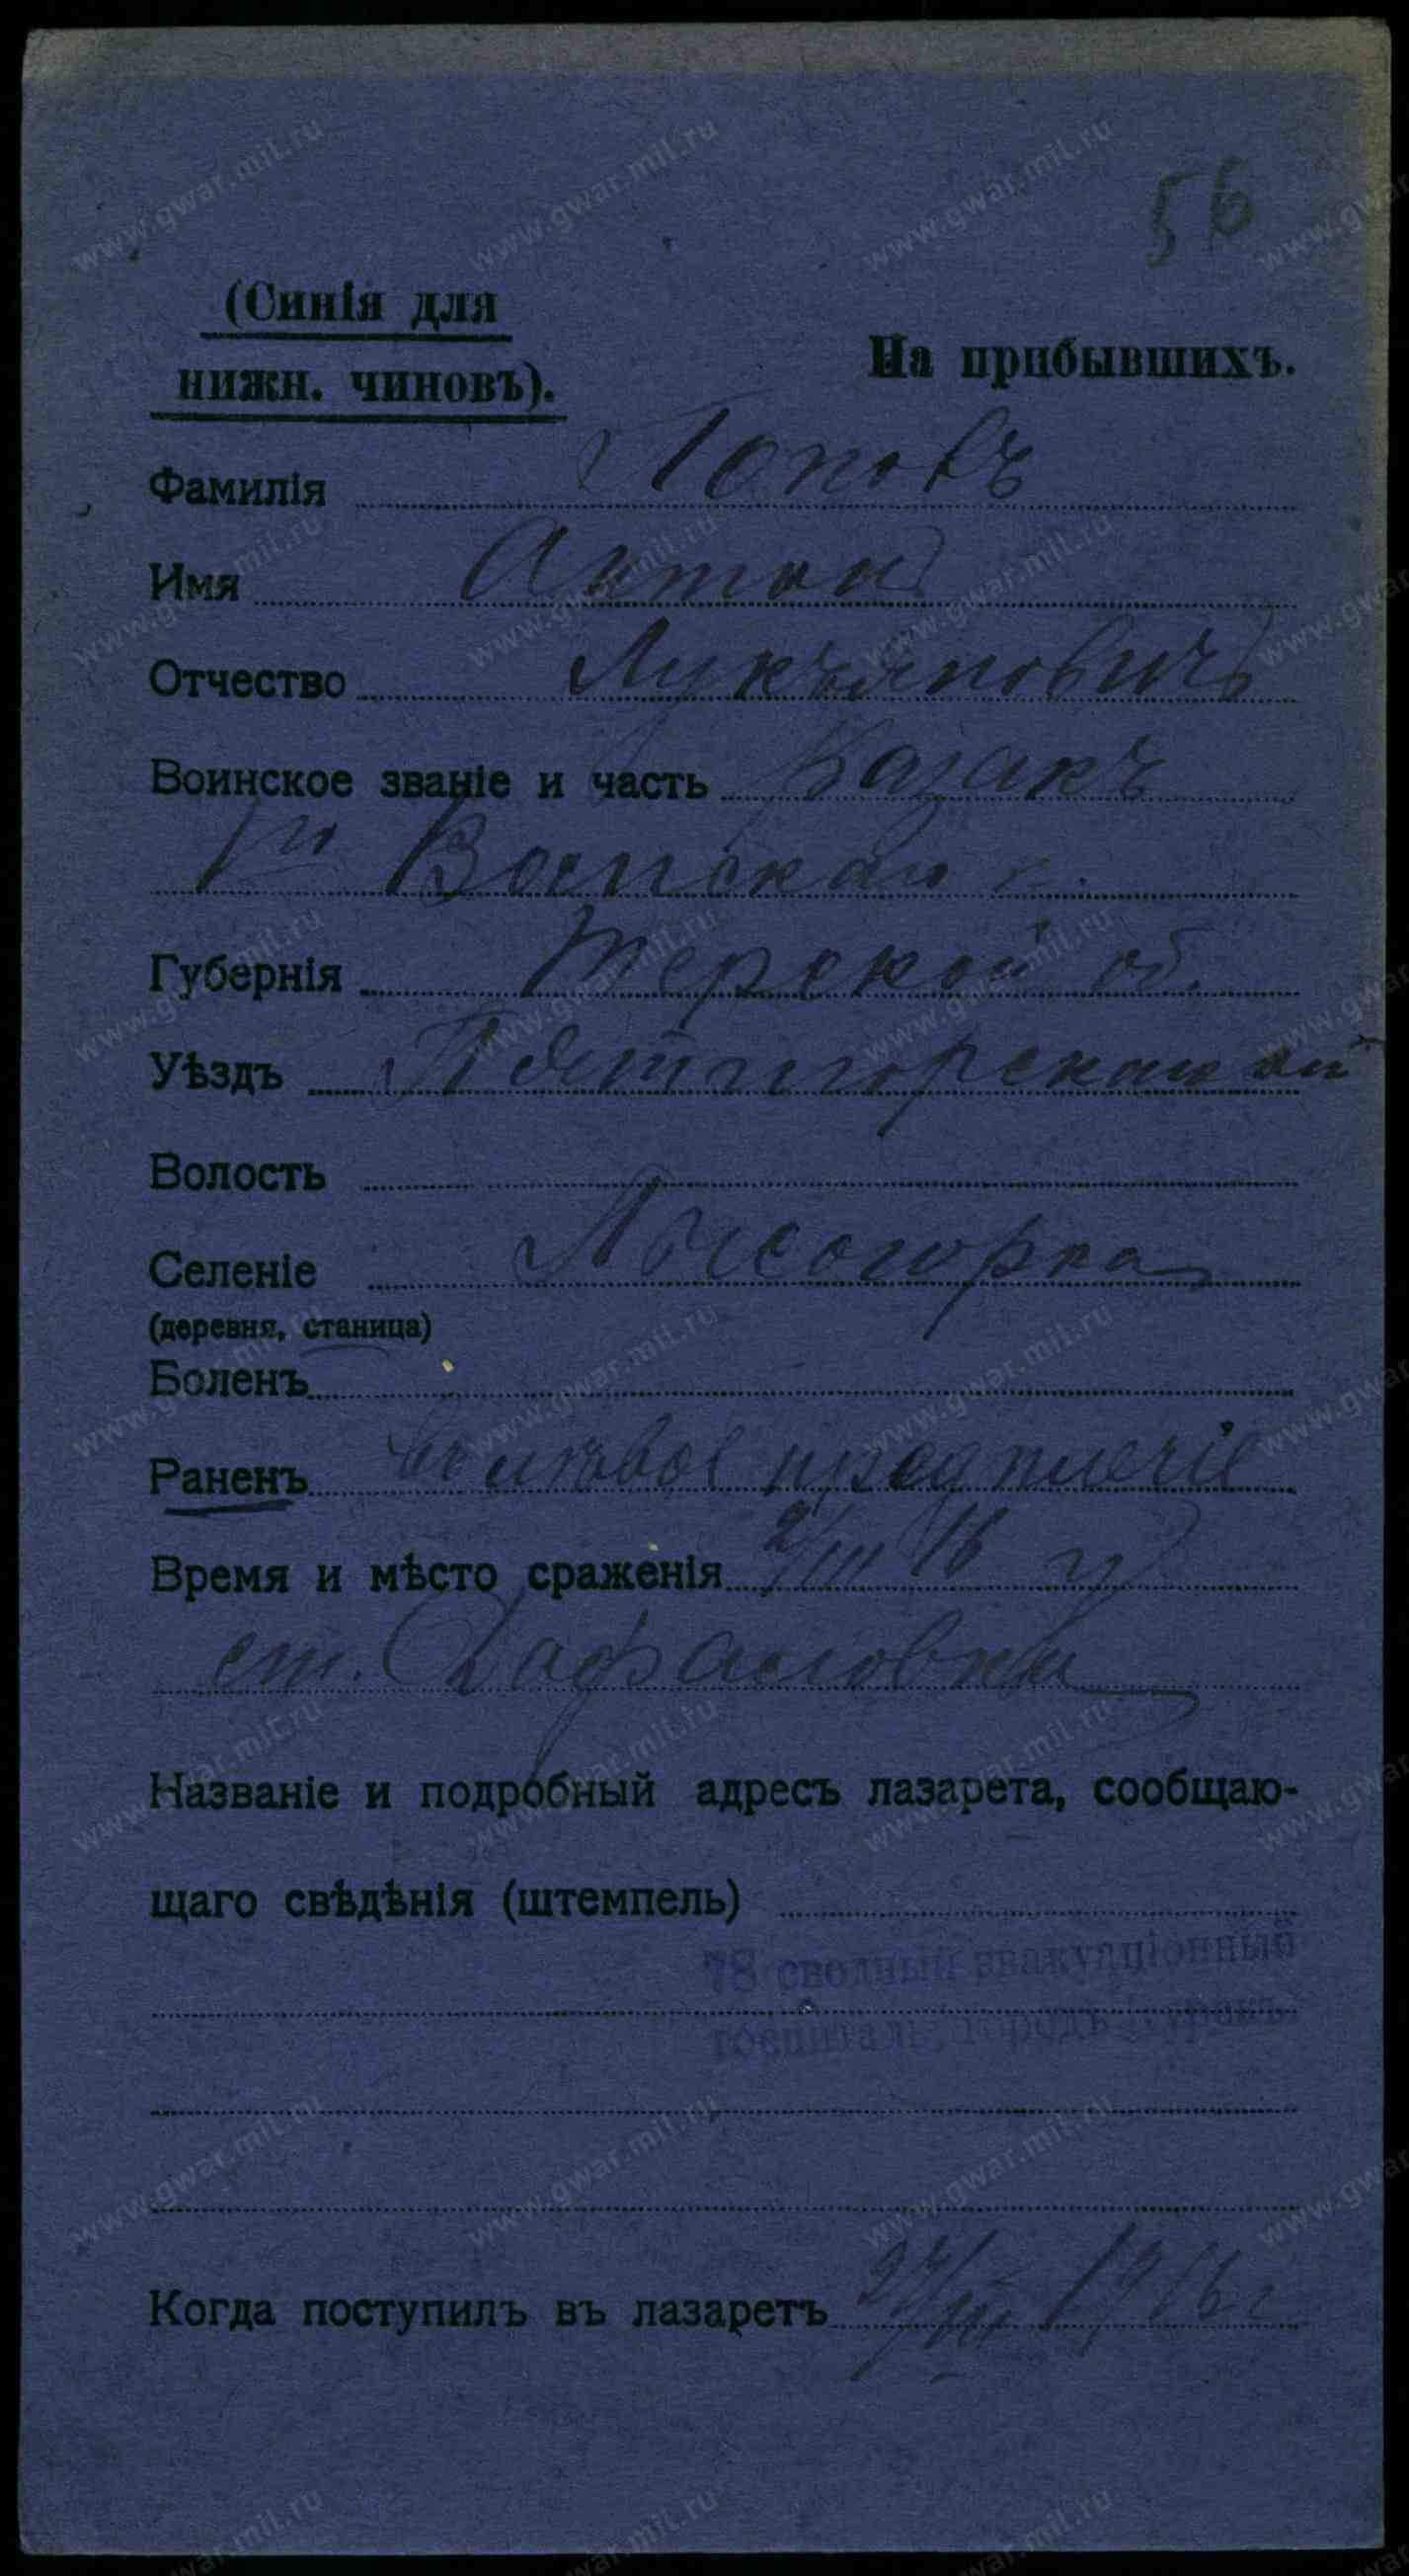 56
(Синія для
нижн. чиновъ).
На прибывшихъ.
Фамилія Поповъ
Имя Антон
Отчество Лукъяновичъ
Воинское званіе и часть Казакъ
1й
Губернія Терской об.
Уѣздъ
Волость
Селеніе Лысогорка
(деревня, станица)
Боленъ
Раненъ въ лѣвое предплечіе
Время и мѣсто сраженія 2/III 16 г
ст.
Названіе и подробный адресъ лазарета, сообщаю-
щаго свѣдѣнія (штемпель)
78 сводный эвакуаціонный
госпиталь
Когда поступилъ въ лазаретъ 1916 г
www.gwar.mil.ru